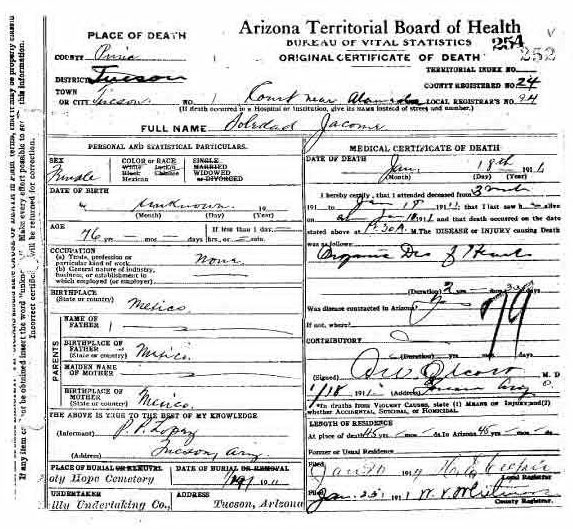 Arizona Territorial Board of Health
PLACE OF DEATH
BUREAU OF VITAL STATISTICS
254
252
COUNTY Pima
ORIGINAL CERTIFICATE OF DEATH
DISTRICT Tucson
TERRITORIAL INDEX NO.
TOWN
COUNTY REGISTERED NO. 24
OR CITY Tucson No. Court near Alameda LOCAL REGISTRAR'S NO. 24
(If death occurred in a Hospital or Institution, give its name instead of street and number.)
FULL NAME Soledad Jacome
PERSONAL AND STATISTICAL PARTICULARS.
SEX
Female
COLOR or RACE
White
Black Chinese
Mexican
SINGLE
MARRIED
WIDOWED
or DIVORCED
DATE OF BIRTH
unknown
(Month) (Day) (Year)
AGE
76 yrs — mos — days
If less than 1 day—
hrs. or min.
OCCUPATION
(a) Trade, profession or
particular kind of work
none
(b) General nature of industry,
business, or establishment in
which employed (or employer).
BIRTHPLACE
(State or country) Mexico
PARENTS
NAME OF
FATHER
BIRTHPLACE OF
FATHER
(State or country) Mexico
MAIDEN NAME
OF MOTHER
BIRTHPLACE OF
MOTHER
(State or country) Mexico
THE ABOVE IS TRUE TO THE BEST OF MY KNOWLEDGE
(Informant) P. P. Lopez
(Address) Tucson, Ariz
PLACE OF BURIAL OR REMOVAL
Holy Hope Cemetery
DATE OF BURIAL OR REMOVAL
UNDERTAKER
Reilly Undertaking Co.,
ADDRESS
Tucson, Arizona
MEDICAL CERTIFICATE OF DEATH
DATE OF DEATH
Jan. 18th 191
(Month) (Day) (Year)
I hereby certify, that I attended deceased from
191 to Jan 18 1911; that I last saw h alive
on Jan 1911 and that death occurred on the date
stated above at M. The DISEASE or INJURY causing Death
was as follows:
Organic Dis of Heart
(Duration) yrs mos
Was disease contracted in Arizona?
If not, where?
79
CONTRIBUTORY
(Duration) yrs mos
(Signed) M. D
1/18 1911 (Address) Tucson Ariz
*In deaths from VIOLENT CAUSES, state (1) MEANS OF INJURY; and (2)
whether ACCIDENTAL, SUICIDAL, or HOMICIDAL.
LENGTH OF RESIDENCE
At place of death 45 yrs — mos — ds. In Arizona 45 yrs — mos — ds.
Former or Usual Residence
Filed
Local Registrar
Filed Jan. 25 1911
County Registrar